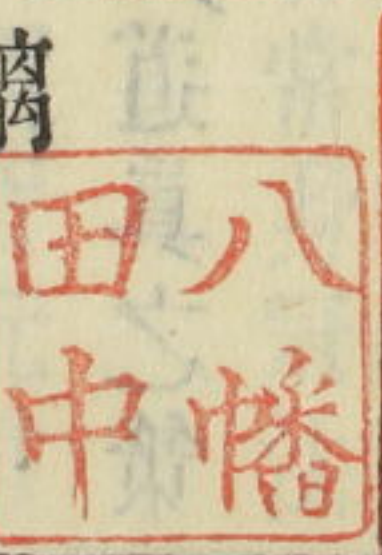 八幡
田中